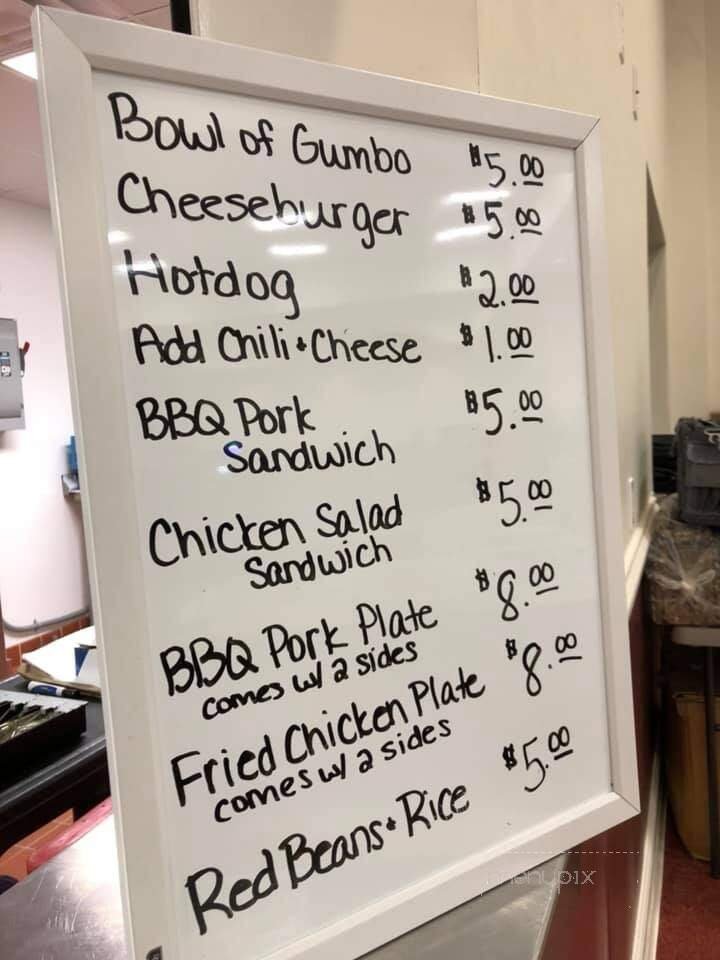 Bowl of Gumbo $5.00
Cheeseburger $5.00
Hotdog $2.00
Add Chili & Cheese $1.00
BBQ Pork $5.00
Sandwich
Chicken Salad $5.00
Sandwich
BBQ Pork Plate $8.00
comes w/ 2 sides
Fried Chicken Plate $8.00
comes w/ 2 sides
Red Beans & Rice $5.00
menupix